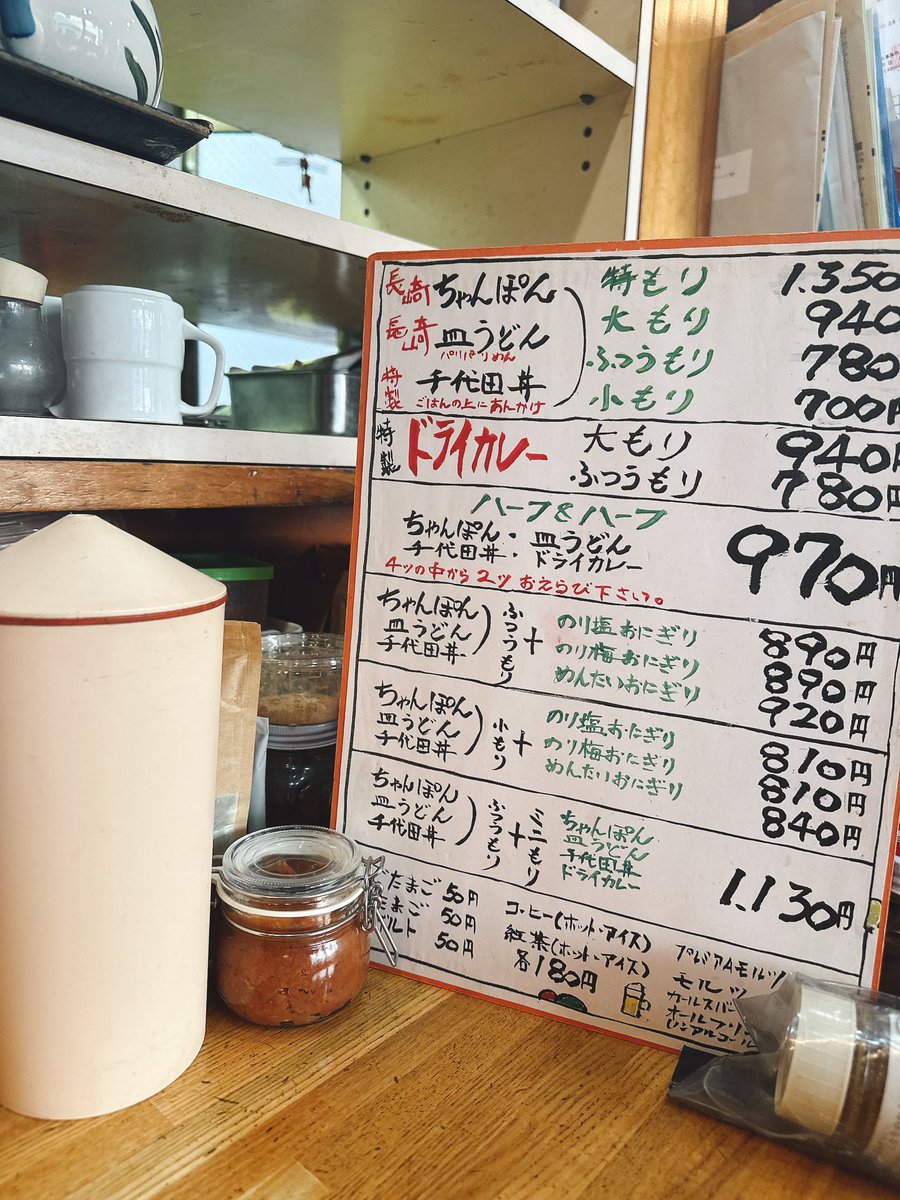 長崎 ちゃんぽん 特もり 1.350
長崎 皿うどん 大もり 940
パリパリめん ふつうもり 780
特製 千代田丼 小もり 700円
ごはんの上にあんかけ
特製 ドライカレー 大もり 940円
ふつうもり 780円
ハーフ&ハーフ
ちゃんぽん・皿うどん
千代田丼・ドライカレー 970円
4ツの中から2ツおえらび下さい。
ちゃんぽん のり塩おにぎり 890円
皿うどん ふつうもり + のり梅おにぎり 890円
千代田丼 めんたいおにぎり 920円
ちゃんぽん のり塩おにぎり 810円
皿うどん 小もり + のり梅おにぎり 810円
千代田丼 めんたいおにぎり 840円
ちゃんぽん ちゃんぽん
皿うどん ふつうもり + ミニもり 皿うどん
千代田丼 千代田丼
ドライカレー 1.130円
たまご 50円
たまご 50円
ルト 50円
コーヒー(ホット・アイス)
紅茶(ホット・アイス)
各180円
プレミアムモルツ
モルツ
カールスバー
オールフリー